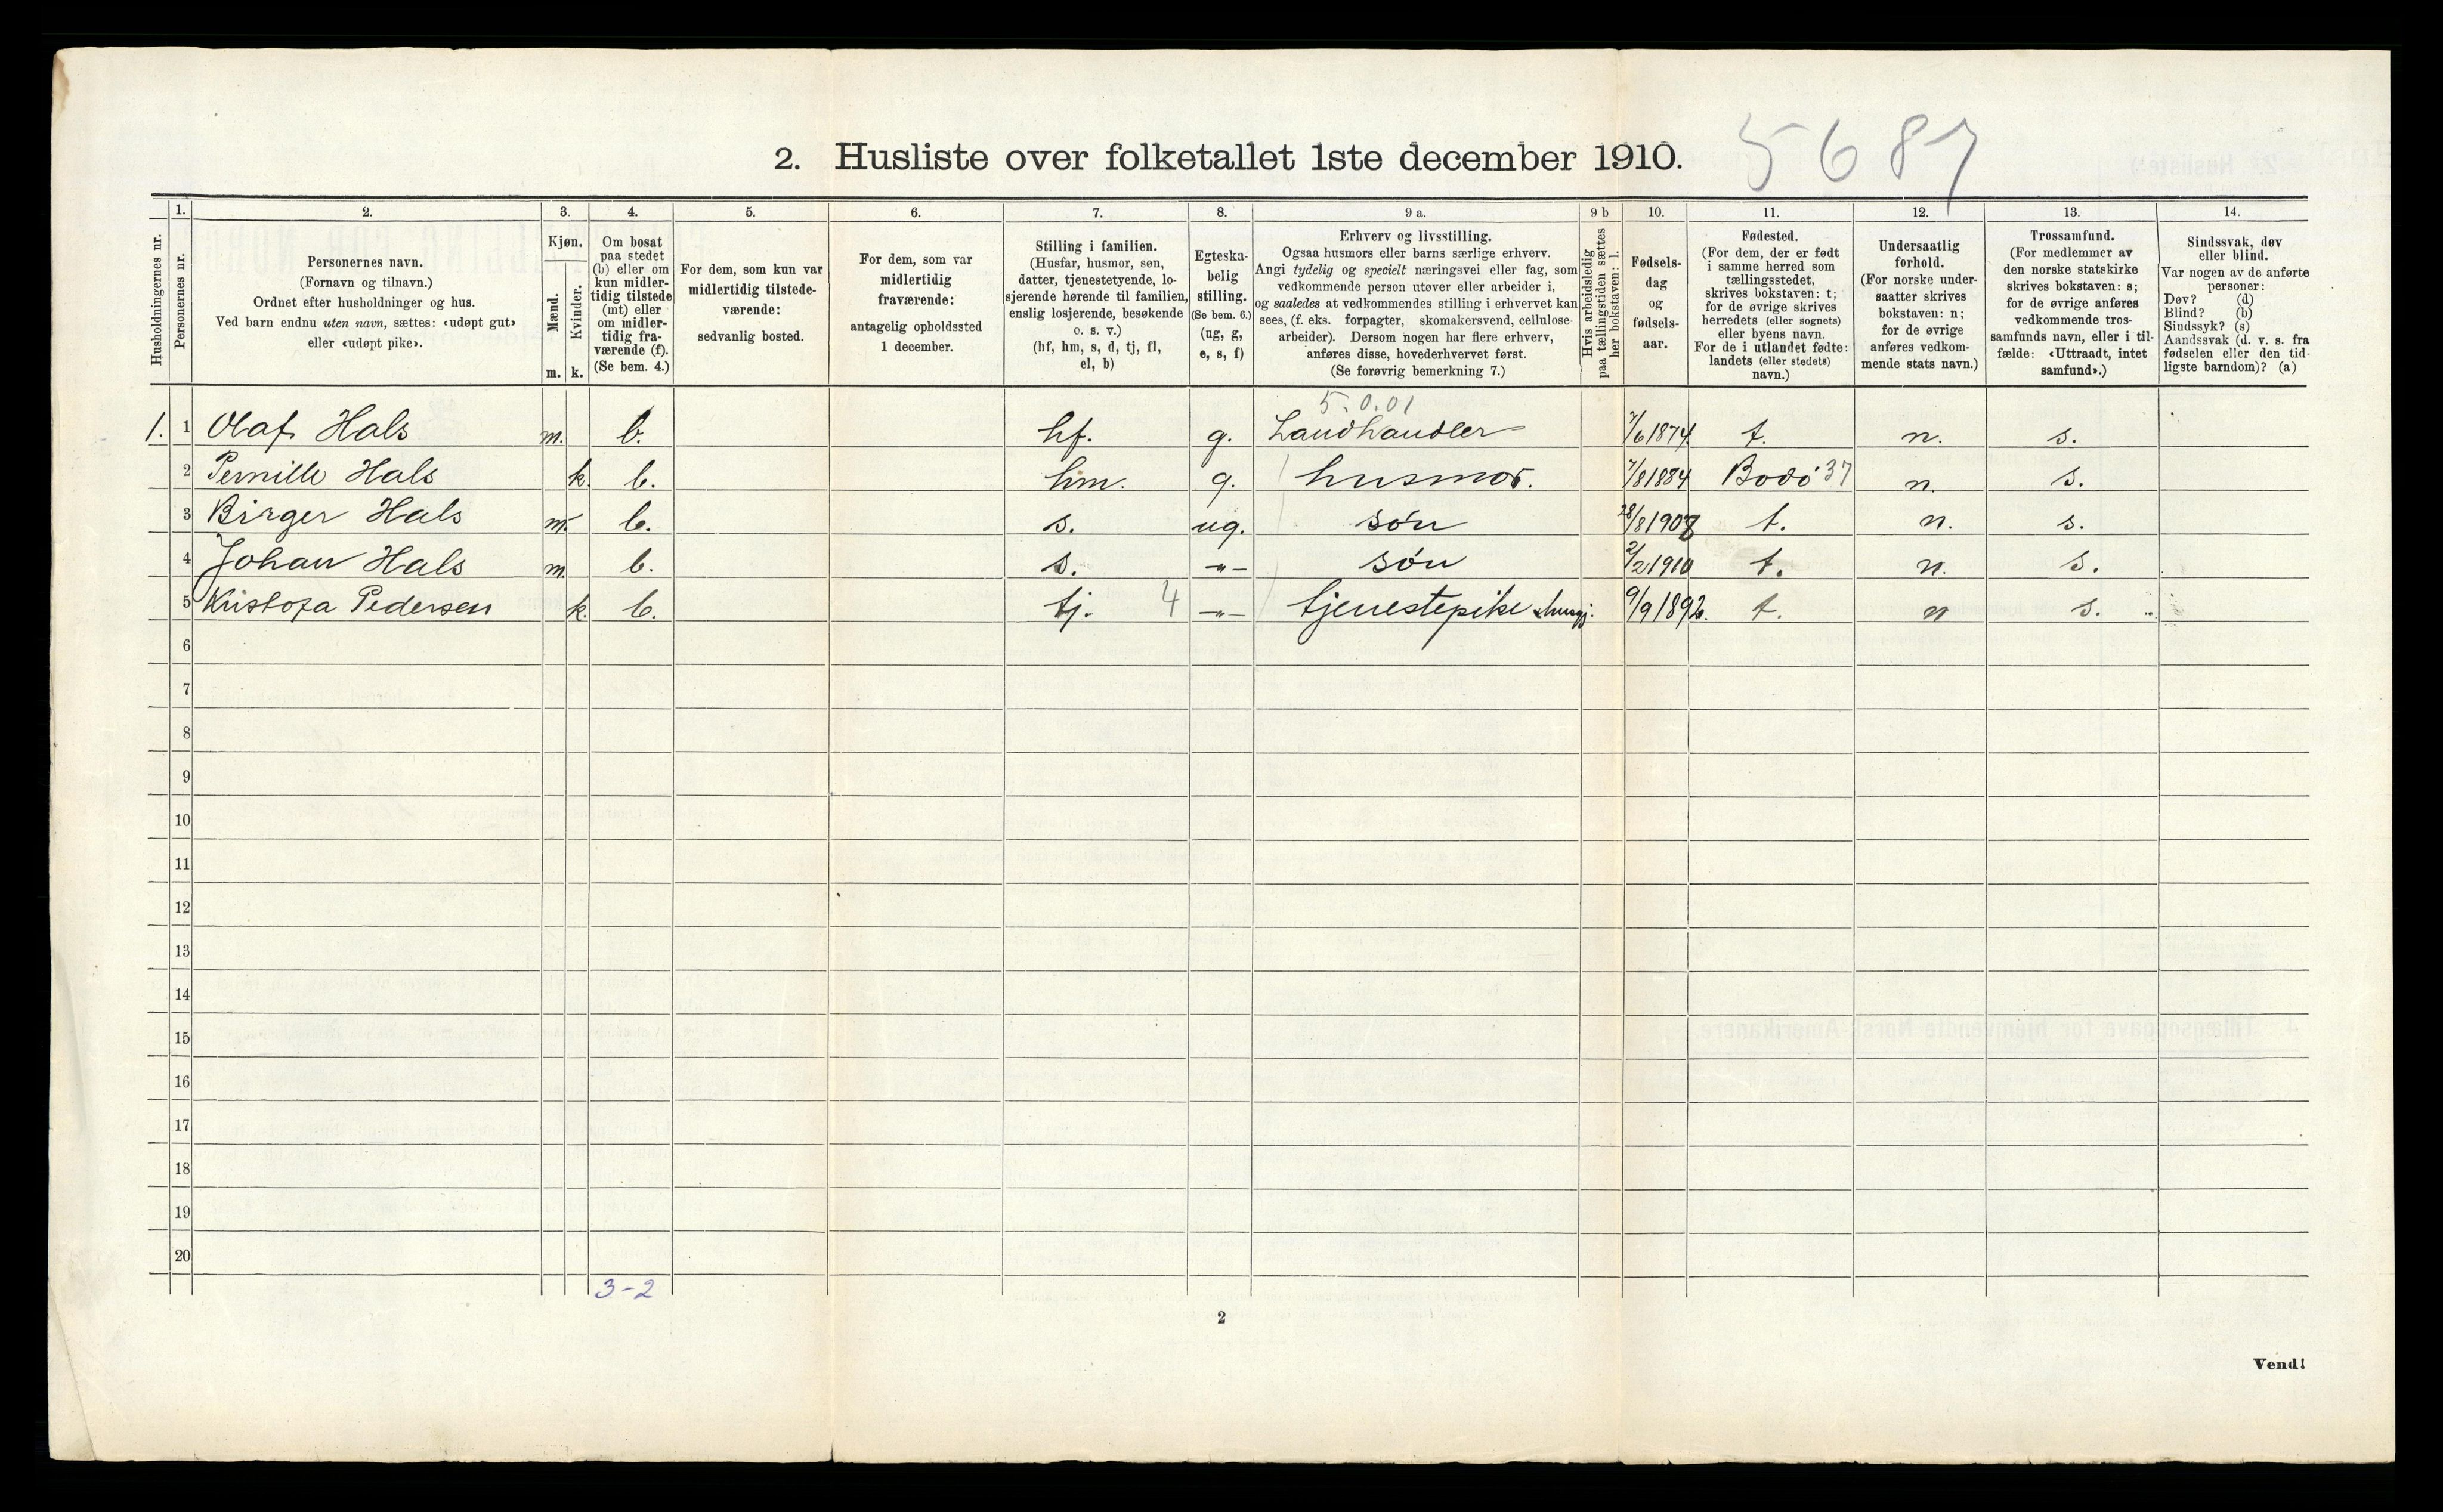 5687
2. Husliste over folketallet 1ste december 1910.
Husholdningernes nr.
1. Personernes nr.
2. Personernes navn. (Fornavn og tilnavn.) Ordnet efter husholdninger og hus. Ved barn endnu uten navn, sættes: «udøpt gut» eller «udøpt pike».
3. Kjøn. Mænd. m. Kvinder. k.
4. Om bosat paa stedet (b) eller om kun midlertidig tilstede (mt) eller om midlertidig fraværende (f). (Se bem. 4.)
5. For dem, som kun var midlertidig tilstedeværende: sedvanlig bosted.
6. For dem, som var midlertidig fraværende: antagelig opholdssted 1 december.
7. Stilling i familien. (Husfar, husmor, søn, datter, tjenestetyende, losjerende hørende til familien, enslig losjerende, besøkende o. s. v.) (hf, hm, s, d, tj, fl, el, b)
8. Egteskabelig stilling. (Se bem. 6.) (ug, g, e, s, f)
9 a. Erhverv og livsstilling. Ogsaa husmors eller barns særlige erhverv. Angi tydelig og specielt næringsvei eller fag, som vedkommende person utøver eller arbeider i, og saaledes at vedkommendes stilling i erhvervet kan sees, (f. eks. forpagter, skomakersvend, cellulosearbeider). Dersom nogen har flere erhverv, anføres disse, hovederhvervet først. (Se forøvrig bemerkning 7.)
9 b Hvis arbeidsledig paa tællingstiden sættes her bokstaven: l.
10. Fødselsdag og fødselsaar.
11. Fødested. (For dem, der er født i samme herred som tællingsstedet, skrives bokstaven: t; for de øvrige skrives herredets (eller sognets) eller byens navn. For de i utlandet fødte: landets (eller stedets) navn.)
12. Undersaatlig forhold. (For norske undersaatter skrives bokstaven: n; for de øvrige anføres vedkommende stats navn.)
13. Trossamfund. (For medlemmer av den norske statskirke skrives bokstaven: s; for de øvrige anføres vedkommende trossamfunds navn, eller i tilfælde: «Uttraadt, intet samfund».)
14. Sindssvak, døv eller blind. Var nogen av de anførte personer: Døv? (d) Blind? (b) Sindssyk? (s) Aandssvak (d. v. s. fra fødselen eller den tidligste barndom)? (a)
5.0.01
1. 1 Olaf Hals m. b. hf. g. Landhandler 7/6 1874 t. n. s.
2 Pernille Hals k. b. hm. g. husmor. 7/8 1884 Bodø 37 n. s.
3 Birger Hals m. b. s. ug. søn 28/8 1908 t. n. s.
4 Johan Hals m. b. s. -„- søn 2/2 1910 t. n. s.
5 Kristofa Pedersen k. b. tj. 4 -„- tjenestepike husgj. 9/9 1892. t. n s.
6
7
8
9
10
11
12
13
14
15
16
17
18
19
20
3-2
2
Vend!